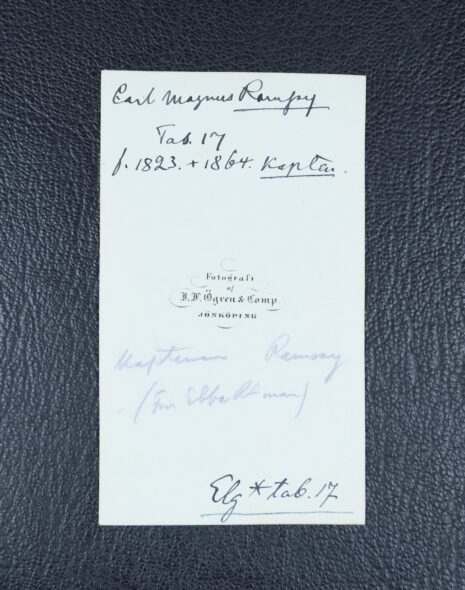 Carl Magnus Ramsay
Tab. 17
f. 1823. + 1864. Kapten.
Fotografi
af
J. F. Ögren & Comp.
JÖNKÖPING
Kaptenens Ramsay
(Fru Ebba
Elg * tab. 17